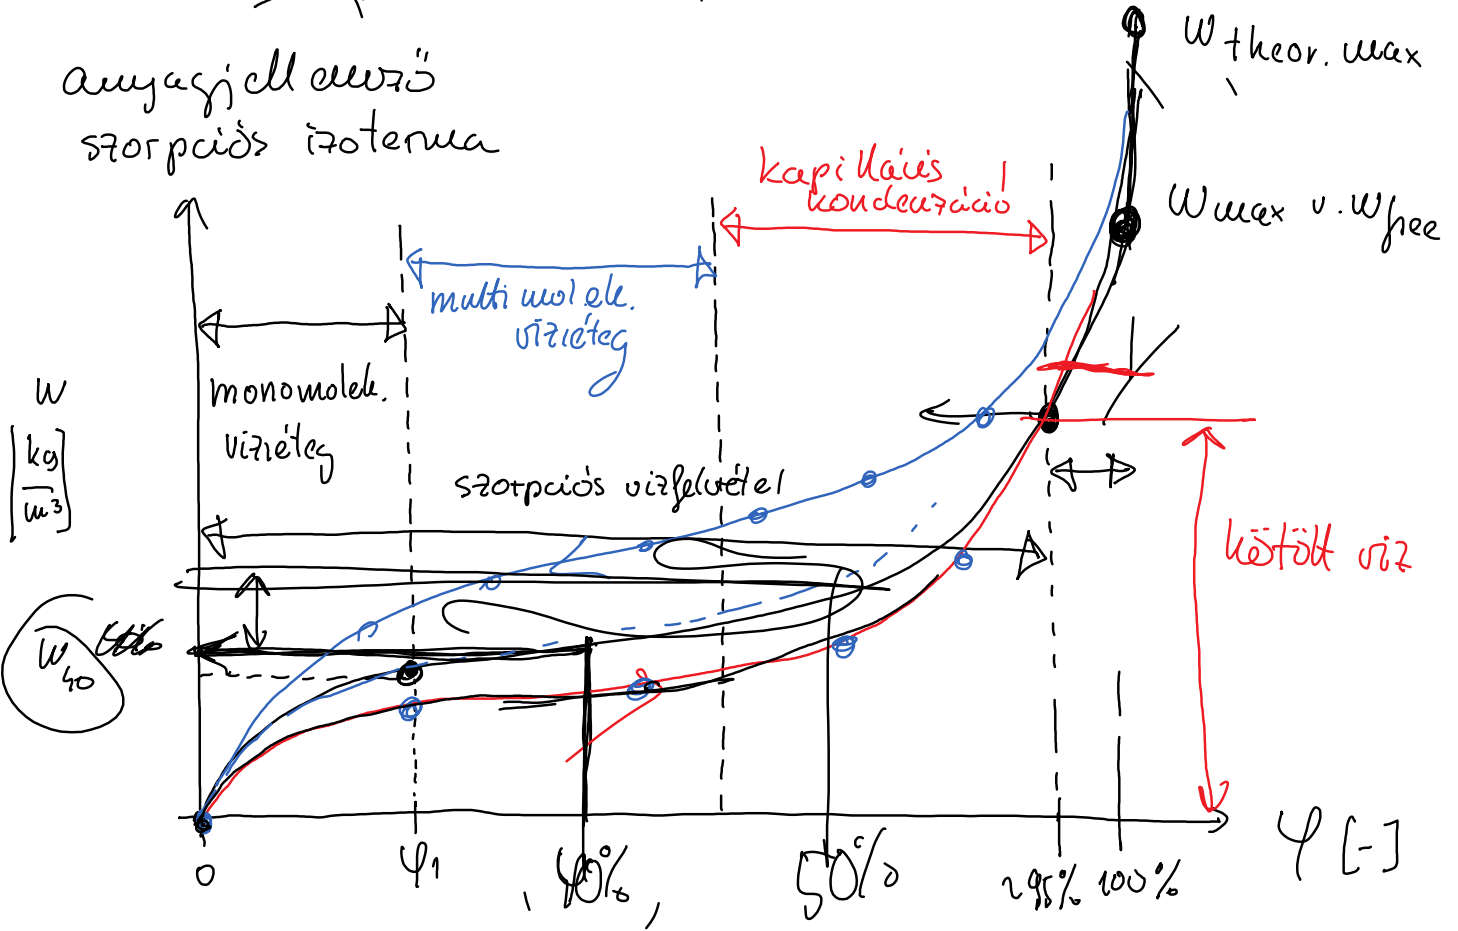 anyagjellemző
szorpciós izoterma
W theor. max
kapilláris
kondenzáció
W max v. W free
multimolek.
vízréteg
monomolek.
vízréteg
W
[kg/m³]
szorpciós vízfelvétel
kötött víz
W40
0
φ1
40%
50%
~95%
100%
φ [-]